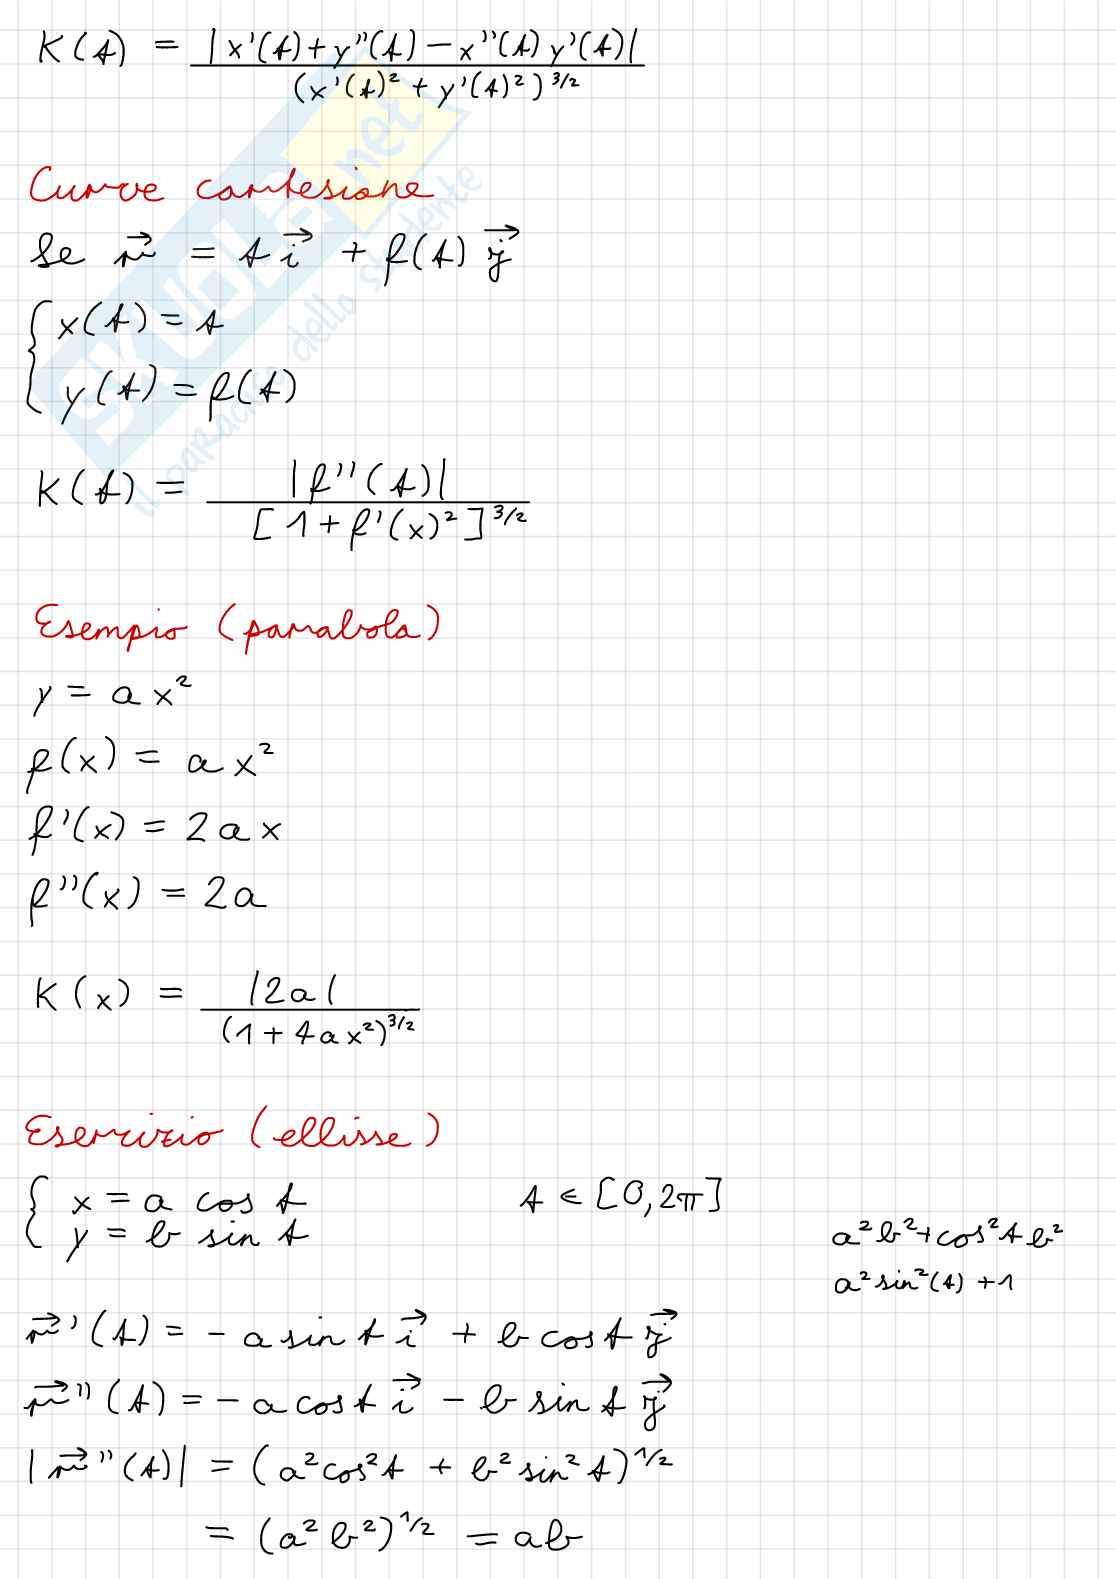 K(t) = |x'(t)+y''(t)-x''(t)y'(t)| / (x'(t)²+y'(t)²)^3/2
Curve cartesiane
Se r⃗ = t i⃗ + f(t) j⃗
{ x(t) = t
y(t) = f(t)
K(t) = |f''(t)| / [1+f'(x)²]^3/2
Esempio (parabola)
y = ax²
f(x) = ax²
f'(x) = 2ax
f''(x) = 2a
K(x) = |2a| / (1+4ax²)^3/2
Esercizio (ellisse)
{ x = a cos t t ∈ [0,2π]
y = b sin t
a²b²+cos²t b²
a² sin²(t) + 1
r⃗'(t) = - a sin t i⃗ + b cos t j⃗
r⃗''(t) = - a cos t i⃗ - b sin t j⃗
|r⃗''(t)| = (a²cos²t + b² sin² t)^1/2
= (a² b²)^1/2 = ab
SKUOLA.net
il paradiso dello studente